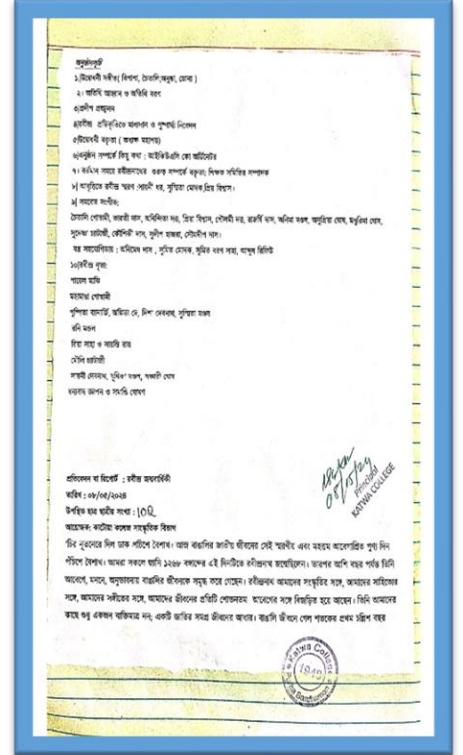 অনুষ্ঠানসূচি
১)উদ্বোধনী সঙ্গীত( বিপাশা, চৈতালি,অনুষ্কা, মোনা )
২। অতিথি আহ্বান ও অতিথি বরণ
৩)প্রদীপ প্রজ্জ্বলন
৪)রবীন্দ্র প্রতিকৃতিতে মাল্যদান ও পুষ্পার্ঘ্য নিবেদন
৫)উদ্বোধনী বক্তৃতা ( অধ্যক্ষ মহাশয়)
৬)অনুষ্ঠান সম্পর্কে কিছু কথা : আইকিউএসি কো অর্ডিনেটর
৭। বর্তমান সময়ে রবীন্দ্রনাথের গুরুত্ব সম্পর্কে বক্তৃতা: শিক্ষক সমিতির সম্পাদক
৮) আবৃত্তিতে রবীন্দ্র স্মরণ :সায়নী ধর, সুস্মিতা মোদক,প্রিয় বিশ্বাস।
৯) সমবেত সংগীত:
চৈতালি গোস্বামী, ভারতী দাস, অনিন্দিতা দত্ত, প্রিয়া বিশ্বাস, পৌলমী দত্ত, রাজর্ষি দাস, অনিমা মণ্ডল, অনুপ্রিয়া ঘোষ, মধুরিমা ঘোষ,
সুদেষ্ণা চ্যাটার্জী, কৌশিকী দাস, সুদীপ হাজরা, সৌম্যদীপ দাস।
যন্ত্র সহযোগিতায় : অনিমেষ দাস , সুমিত মোদক, সুমিত বরণ সাহা, আব্দুল
১০)রবীন্দ্র নৃত্য:
পায়েল মাঝি
মহামায়া গোস্বামী
পুষ্পিতা ব্যানার্জি, অমিতা দে, দিশা দেবনাথ, সুস্মিতা মণ্ডল
রনি মণ্ডল
রিয়া সাহা ও সায়ন্তি রায়
মৌলি চ্যাটার্জী
দেবনাথ, যূথিকা মণ্ডল, ঘোষ
ধন্যবাদ জ্ঞাপন ও সমাপ্তি ঘোষণা
Principal
KATWA COLLEGE
প্রতিবেদন বা রিপোর্ট : রবীন্দ্র জন্মবার্ষিকী
তারিখ : ০৮/০৫/২০২৪
উপস্থিত ছাত্র ছাত্রীর সংখ্যা : 102
আয়োজক: কাটোয়া কলেজ সাংস্কৃতিক বিভাগ
'চির নূতনেরে দিল ডাক পঁচিশে বৈশাখ। আজ বাঙালির জাতীয় জীবনের সেই স্মরণীয় এবং মহত্তম আবেগাশ্রিত পুণ্য দিন
পঁচিশে বৈশাখ। আমরা সকলে জানি ১২৬৮ বঙ্গাব্দের এই দিনটিতে রবীন্দ্রনাথ জন্মেছিলেন। তারপর আশি বছর পর্যন্ত তিনি
আবেগে, মননে, অনুভাবনায় বাঙালির জীবনকে সমৃদ্ধ করে গেছেন। রবীন্দ্রনাথ আমাদের সংস্কৃতির সঙ্গে, আমাদের সাহিত্যের
সঙ্গে, আমাদের সঙ্গীতের সঙ্গে, আমাদের জীবনের প্রতিটি শোভনতম আবেগের সঙ্গে বিজড়িত হয়ে আছেন। তিনি আমাদের
কাছে শুধু একজন ব্যক্তিমাত্র নন; একটি জাতির সমগ্র জীবনের আধার। বাঙালি জীবনে গেল শতকের প্রথম চল্লিশ বছর
Katwa College
1948
Purba Bardhaman